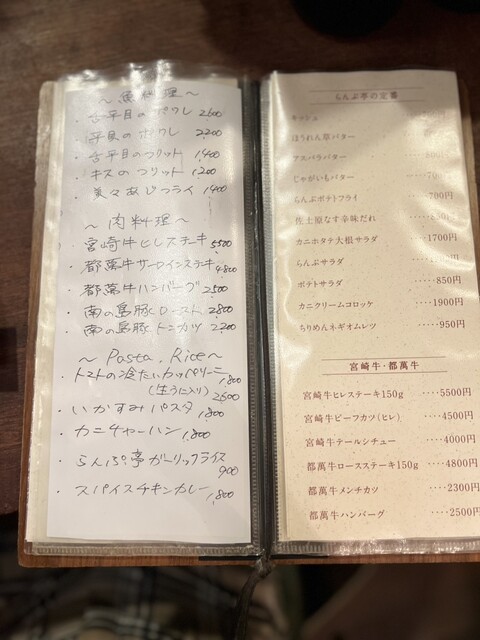 〜魚料理〜
・舌平目のポワレ 2600
・平貝のポワレ 2200
・舌平目のフリット 1,400
・キスのフリット 1,200
・美々あじフライ 1,400
〜肉料理〜
・宮崎牛ヒレステーキ 5500
・都萬牛サーロインステーキ 4,800
・都萬牛ハンバーグ 2500
・南の島豚ロースト 2800
・南の島豚トンカツ 2200
〜Pasta, Rice〜
・トマトの冷たいカッペリーニ 1,800
(生うに入り) 2600
・いかすみパスタ 1,800
・カニチャーハン 1,800
・らんぷ亭ガーリックライス 900
・スパイスチキンカレー 1,800
らんぷ亭の定番
キッシュ
ほうれん草バター
アスパラバター
じゃがいもバター
らんぷポテトフライ ‥‥700円
佐土原なす辛味だれ
カニホタテ大根サラダ ‥‥1700円
らんぷサラダ
ポテトサラダ ‥‥850円
カニクリームコロッケ ‥‥1900円
ちりめんネギオムレツ ‥‥950円
宮崎牛・都萬牛
宮崎牛ヒレステーキ150g ‥‥5500円
宮崎牛ビーフカツ(ヒレ) ‥‥4500円
宮崎牛テールシチュー ‥‥4000円
都萬牛ロースステーキ150g ‥‥4800円
都萬牛メンチカツ ‥‥2300円
都萬牛ハンバーグ ‥‥2500円